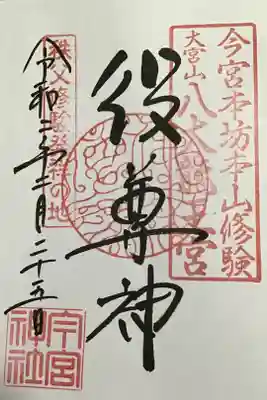 今宮本坊本山修験
大宮山
八大龍王宮
役尊神
秩父修験発祥の地
令和二年二月二十五日
今宮
神社